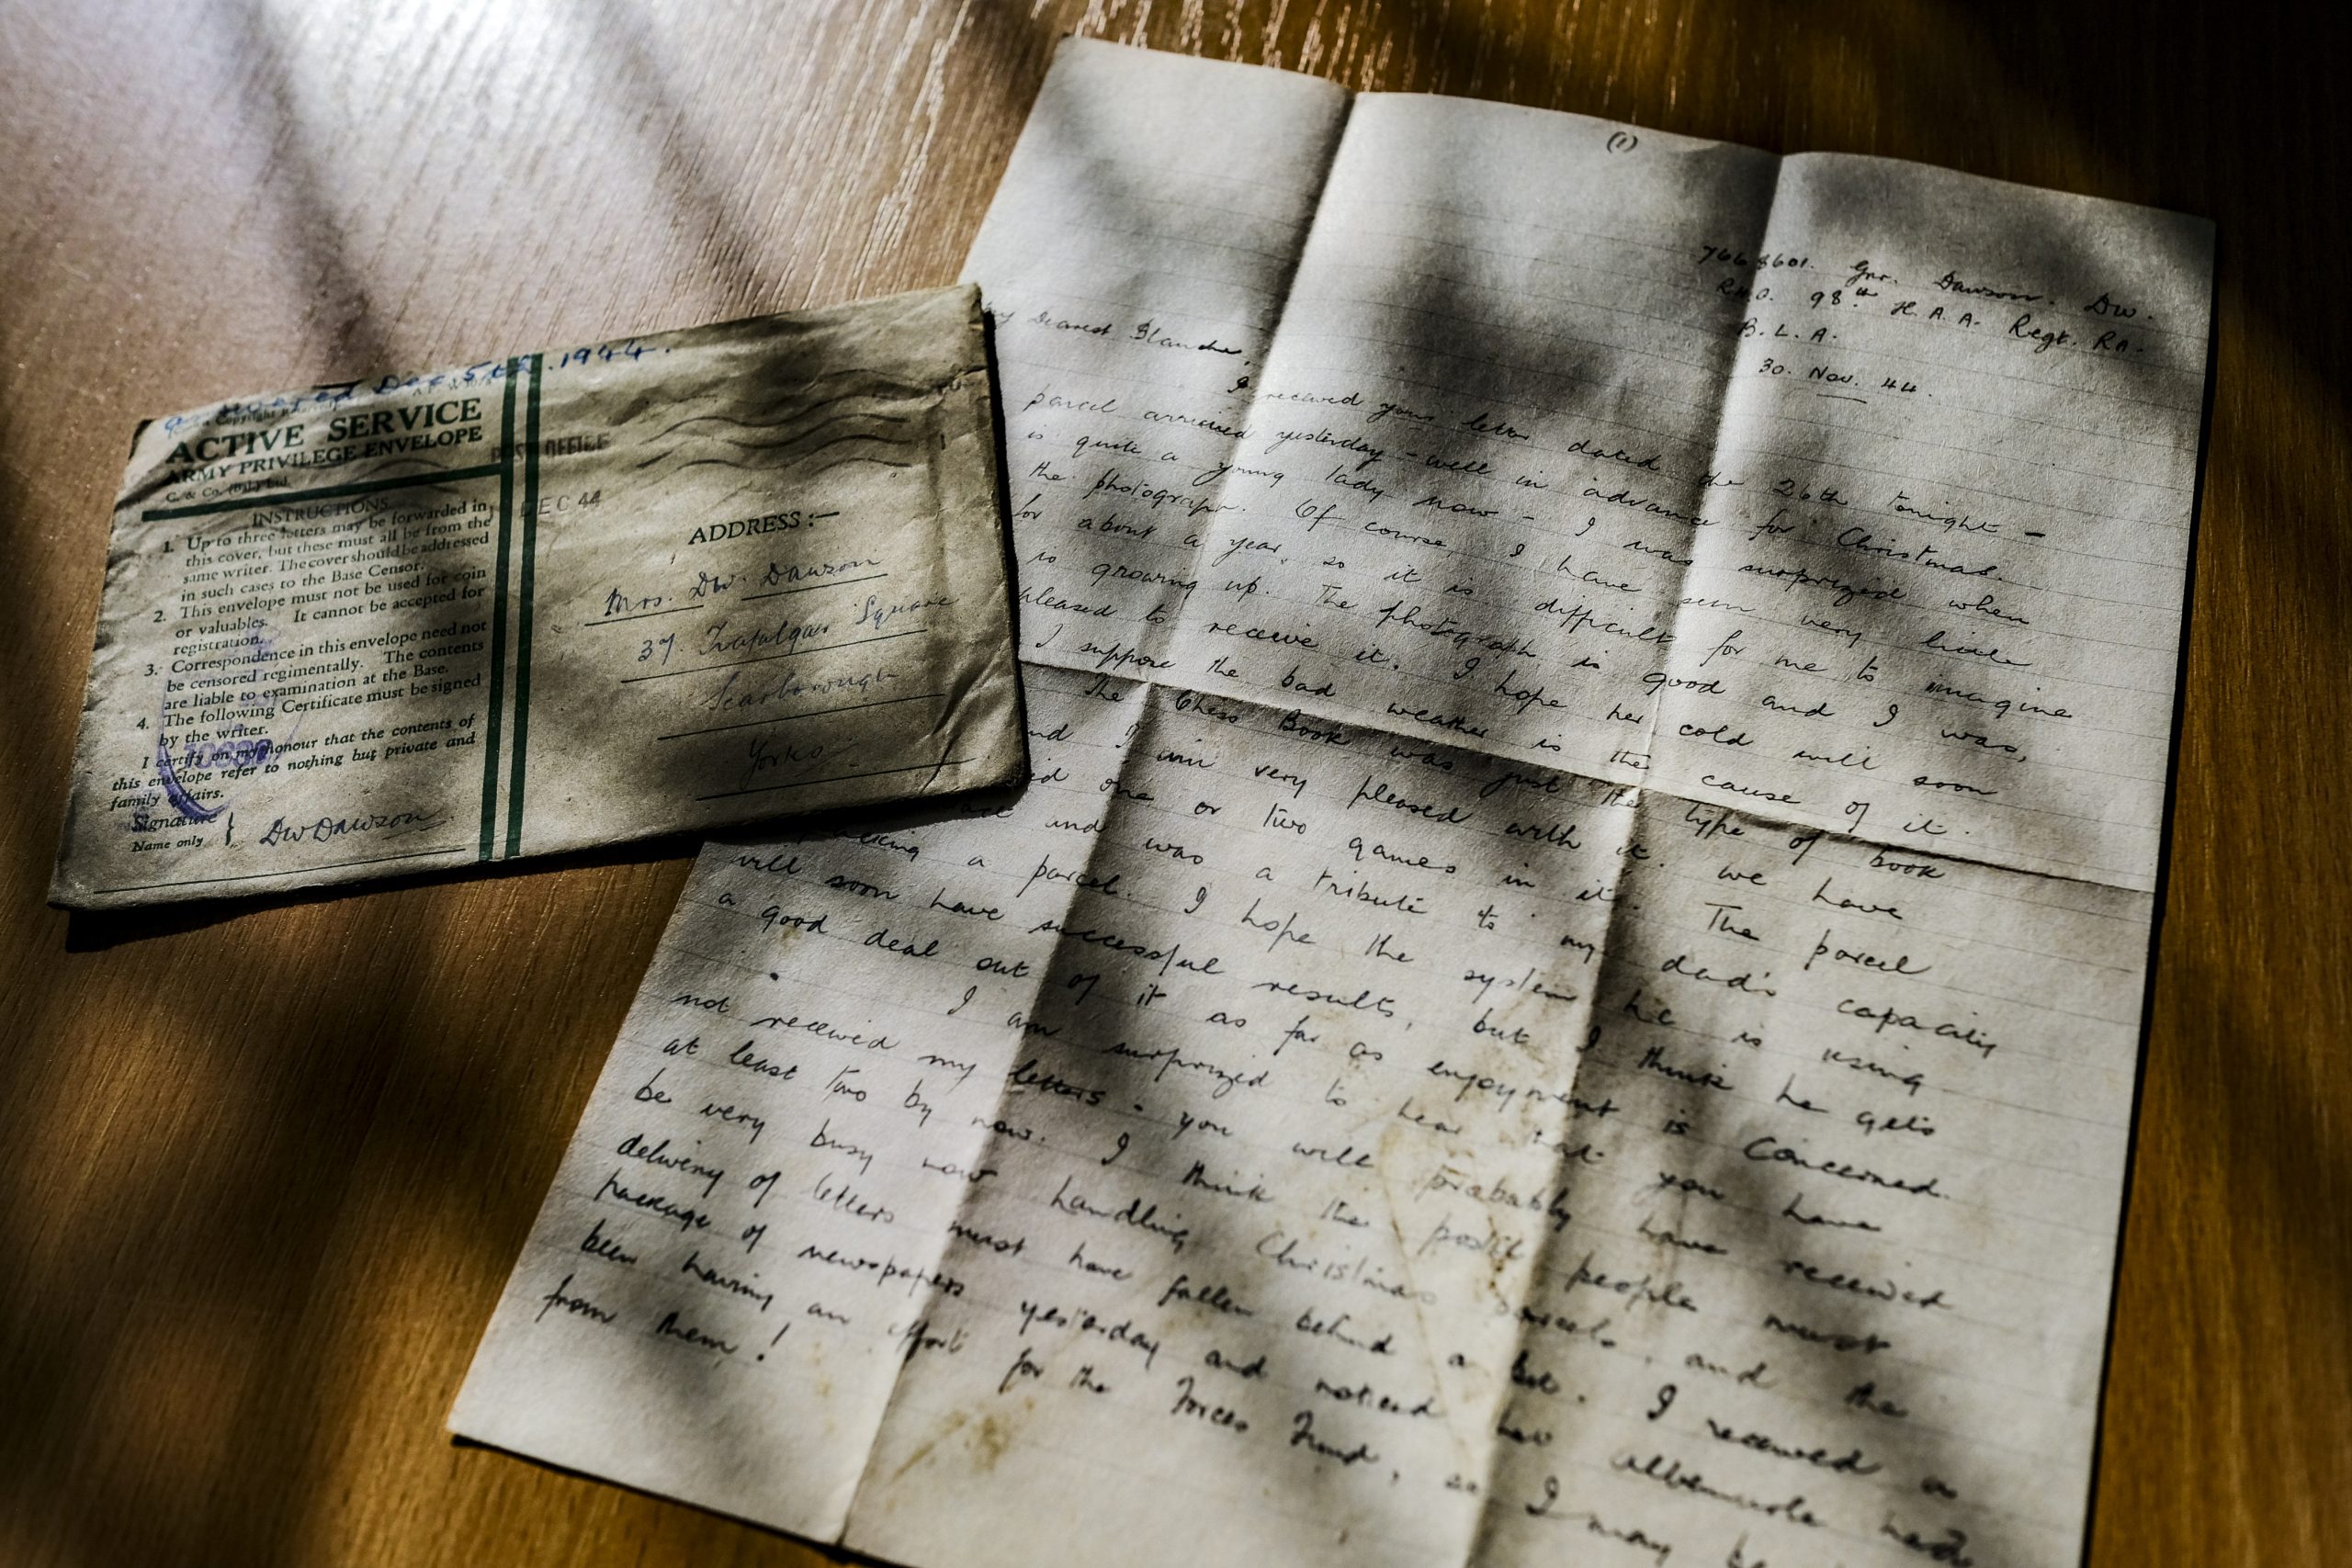 answered Dec 5th. 1944.
ACTIVE SERVICE
ARMY PRIVILEGE ENVELOPE
C. & Co. Ltd.
INSTRUCTIONS
1. Up to three letters may be forwarded in
this cover, but these must all be from the
same writer. The cover should be addressed
in such cases to the Base Censor.
2. This envelope must not be used for coin
or valuables. It cannot be accepted for
registration.
3. Correspondence in this envelope need not
be censored regimentally. The contents
are liable to examination at the Base.
4. The following Certificate must be signed
by the writer.
I certify on my honour that the contents of
this envelope refer to nothing but private and
family affairs.
Signature
Name only } DW Dawson
POST OFFICE
DEC 44
ADDRESS :—
Mrs. DW. Dawson
37, Trafalgar Square
Scarborough
Yorks
(1)
7668601. Gnr. Dawson. DW.
R.H.Q. 98th H.A.A. Regt. RA.
B.L.A.
30. Nov. 44.
My Dearest Blanche,
I received your letter dated the 26th tonight -
parcel arrived yesterday - well in advance for Christmas.
is quite a young lady now - I was surprized when
the photograph. Of course I have seen very little
for about a year, so it is difficult for me to imagine
is growing up. The photograph is good and I was,
pleased to receive it. I hope her cold will soon
I suppose the bad weather is the cause of it.
The Chess Book was just the type of book
and I am very pleased with it. We have
one or two games in it. The parcel
and was a tribute to my dad's capacity
packing a parcel. I hope the system he is using
will soon have successful results, but I think he gets
a good deal out of it as far as enjoyment is concerned.
I am surprized to hear that you have
not received my letters - you will probably have received
at least two by now. I think the postal people must
be very busy now handling Christmas parcels, and the
delivery of letters must have fallen behind a bit. I received a
package of newspapers yesterday and noticed
been having an effort for the Forces Fund, so I may
from them!